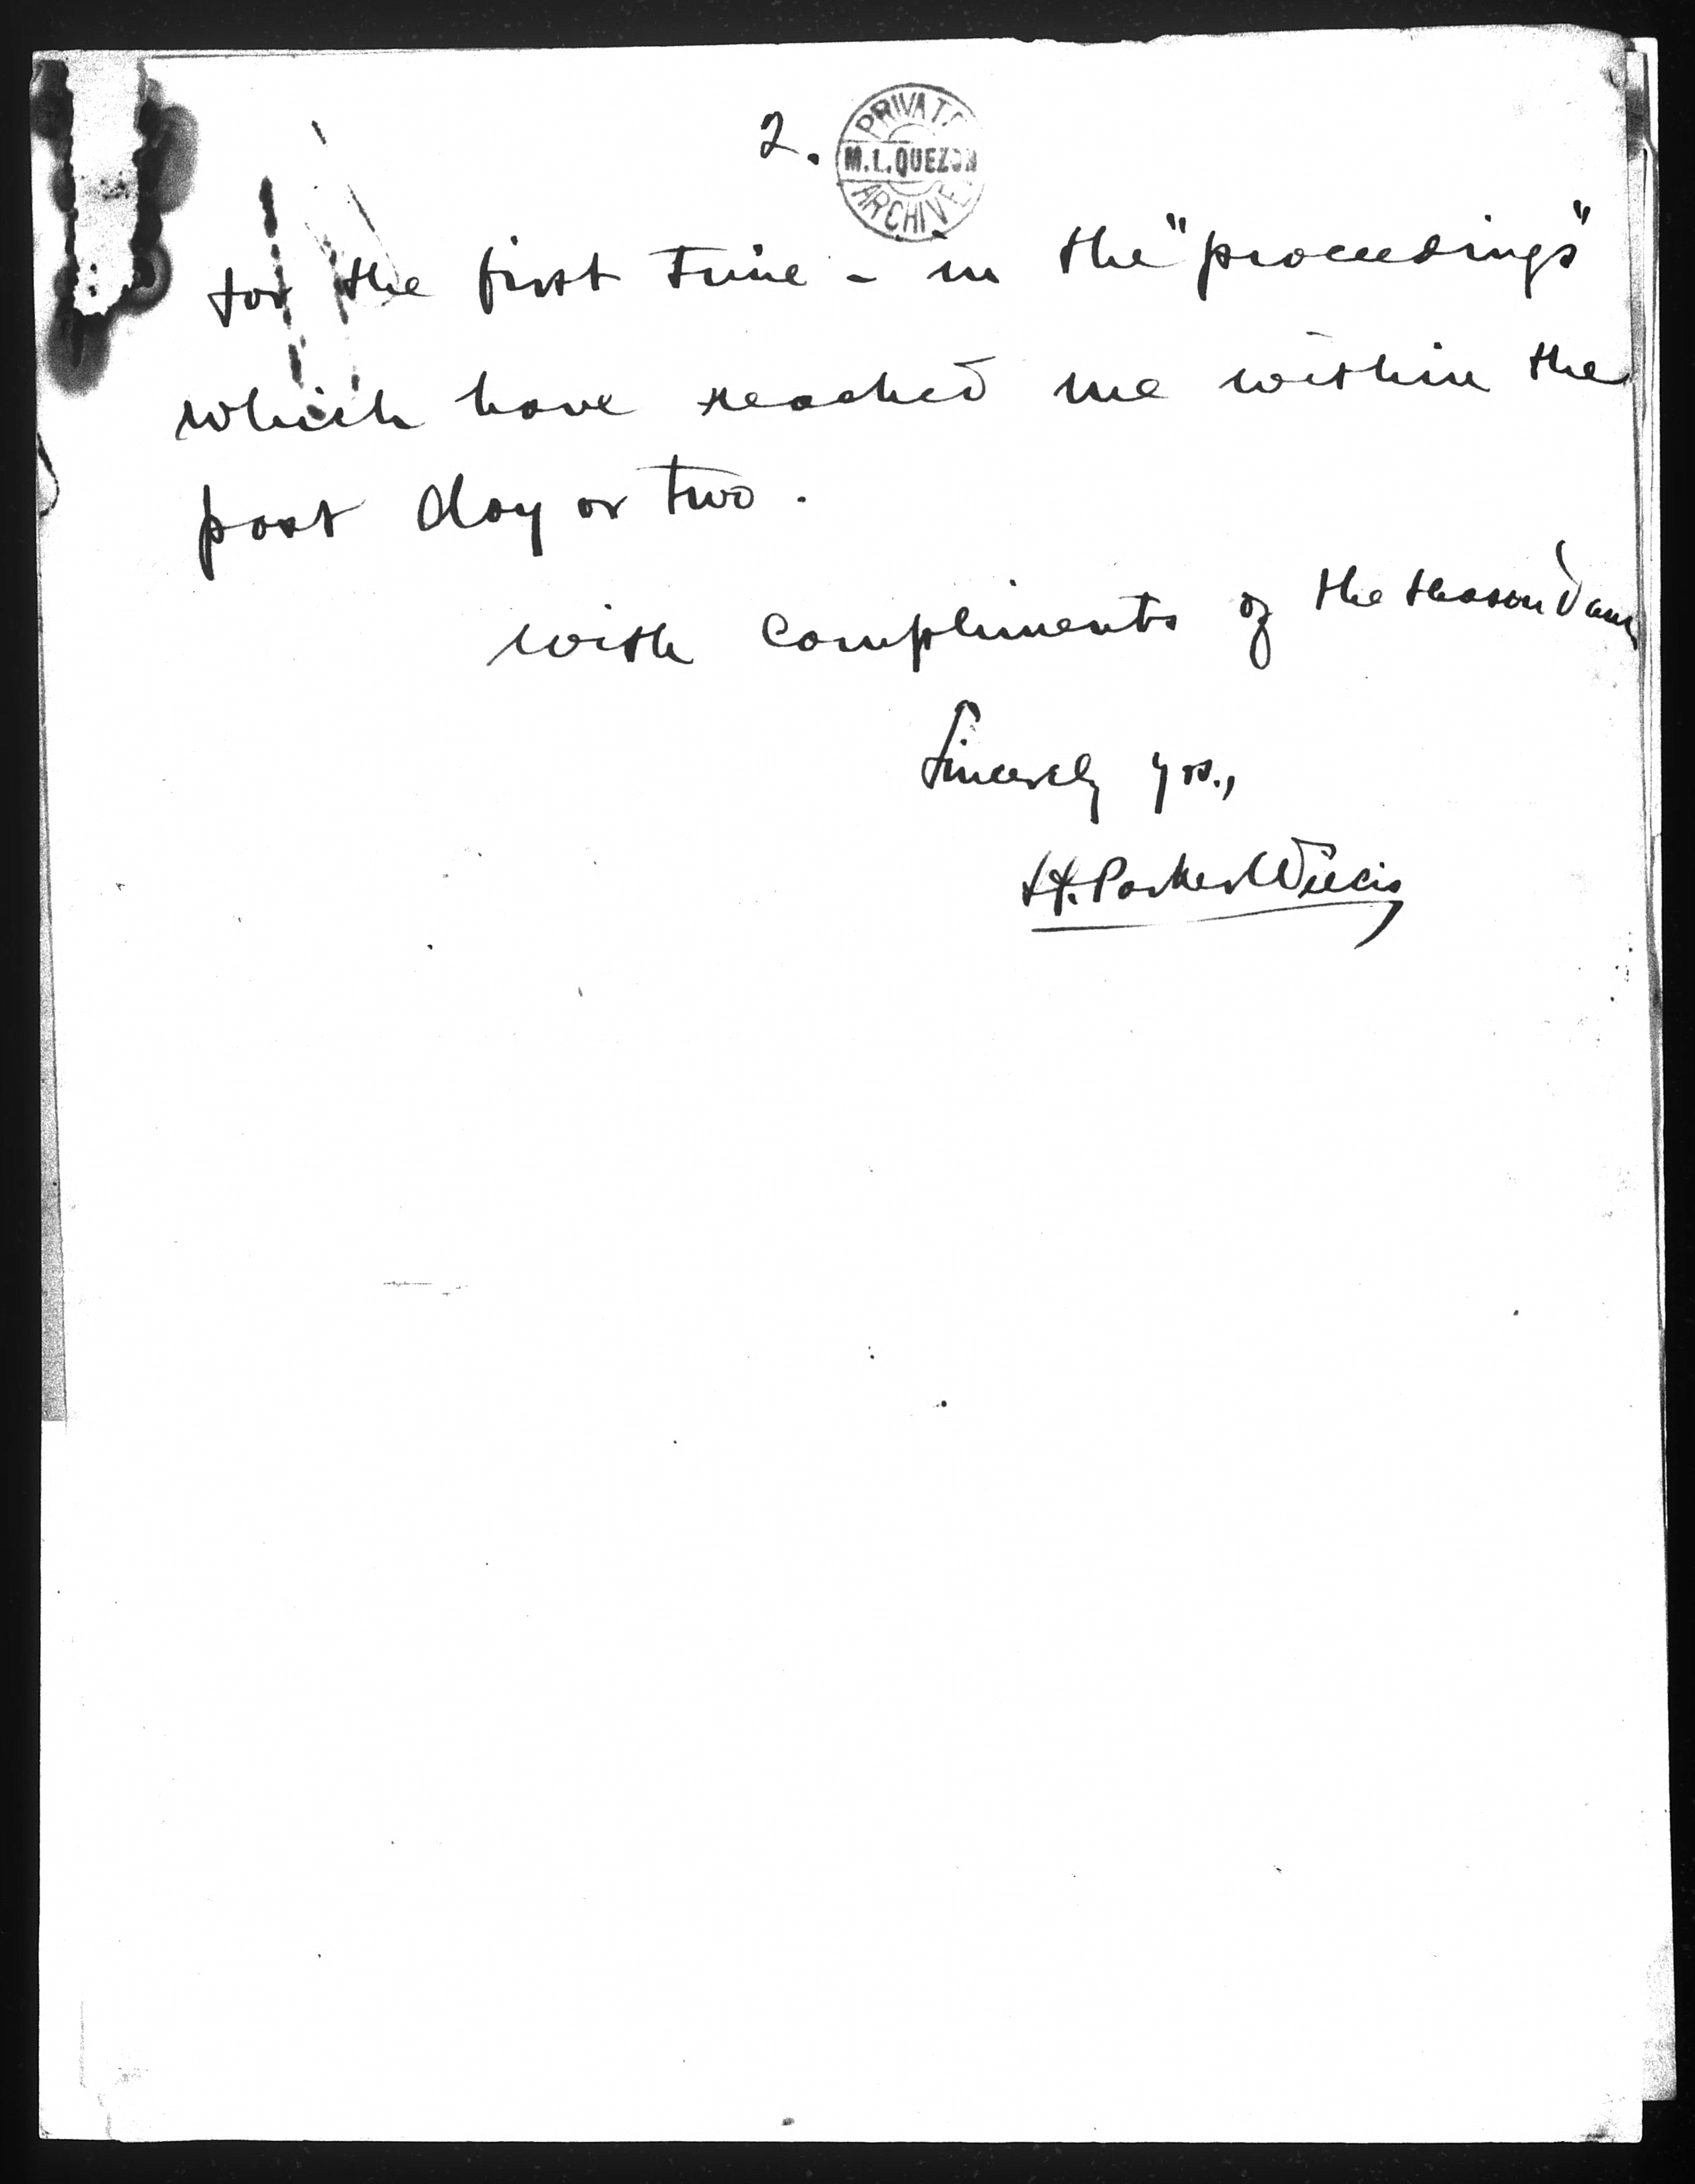 2.
PRIVATE
M.L.QUEZON
ARCHIVE
for the first time - in the "proceedings"
which have reached me within the
past day or two.
with compliments of the season I am
Sincerely yrs.,
H. Parker Willis